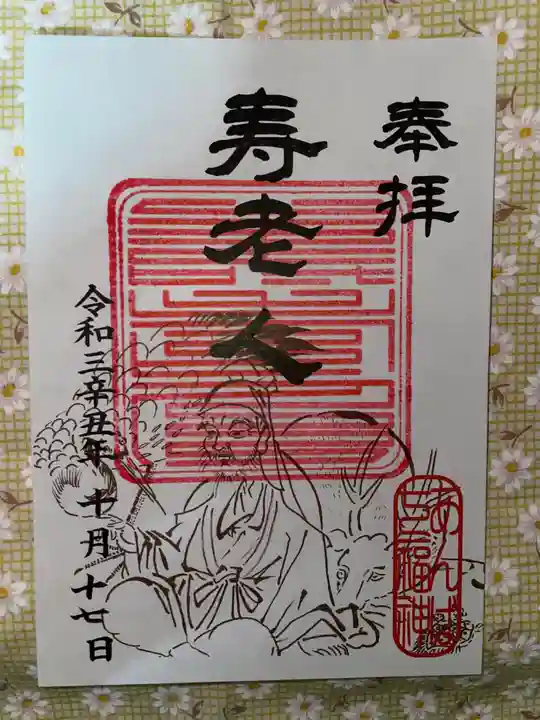 奉拝
寿老人
令和三辛丑年 十月十七日
あんば
福神